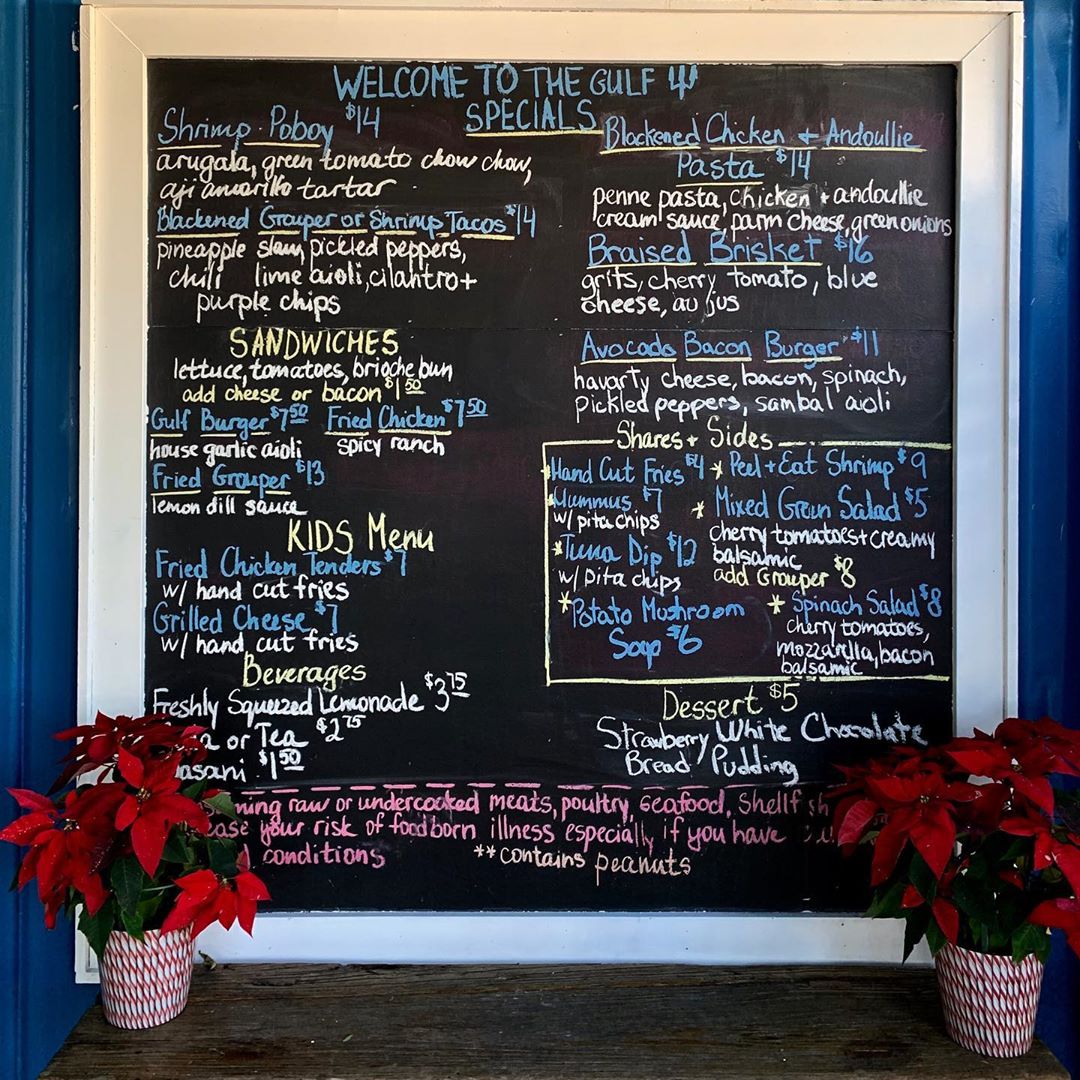 WELCOME TO THE GULF
SPECIALS
Shrimp Poboy $14
arugala, green tomato chow chow,
aji amarillo tartar
Blackened Grouper or Shrimp Tacos $14
pineapple slaw, pickled peppers,
chili lime aioli, cilantro +
purple chips
SANDWICHES
lettuce, tomatoes, brioche bun
add cheese or bacon $1 50
Gulf Burger $7 50 Fried Chicken $7 50
house garlic aioli spicy ranch
Fried Grouper $13
lemon dill sauce
KIDS Menu
Fried Chicken Tenders $7
w/ hand cut fries
Grilled Cheese $7
w/ hand cut fries
Beverages
Freshly Squeezed Lemonade $3 75
or Tea $2 75
asani $1 50
Blackened Chicken + Andoullie
Pasta $14
penne pasta, chicken + andoullie
cream sauce, parm cheese, green onions
Braised Brisket $16
grits, cherry tomato, blue
cheese, au jus
Avocado Bacon Burger $11
havarty cheese, bacon, spinach,
pickled peppers, sambal aioli
Shares + Sides
*Hand Cut Fries $4
*Hummus $7
w/ pita chips
*Tuna Dip $12
w/ pita chips
*Potato Mushroom
Soup $6
*Peel + Eat Shrimp $9
*Mixed Green Salad $5
cherry tomatoes + creamy
balsamic
add Grouper $8
*Spinach Salad $8
cherry tomatoes,
mozzarella, bacon
balsamic
Dessert $5
Strawberry White Chocolate
Bread Pudding
ming raw or undercooked meats, poultry, seafood, shellf sh
ase your risk of foodborn illness especially if you have
conditions **contains peanuts